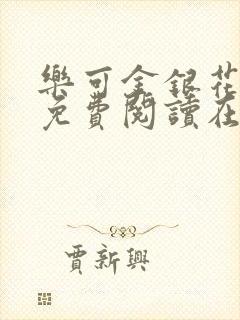 樂可金銀花
免費閱讀在
賈新興